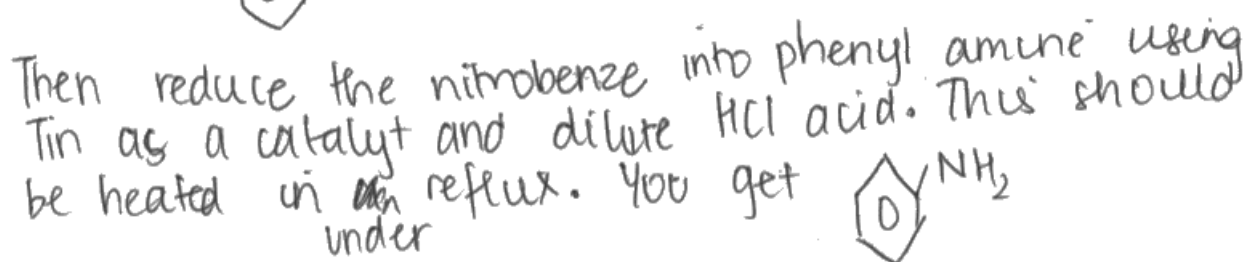 Then reduce the nitrobenze into phenyl amine using
Tin as a catalyt and dilute HCl acid. This should
be heated in reflux. You get NH₂
under